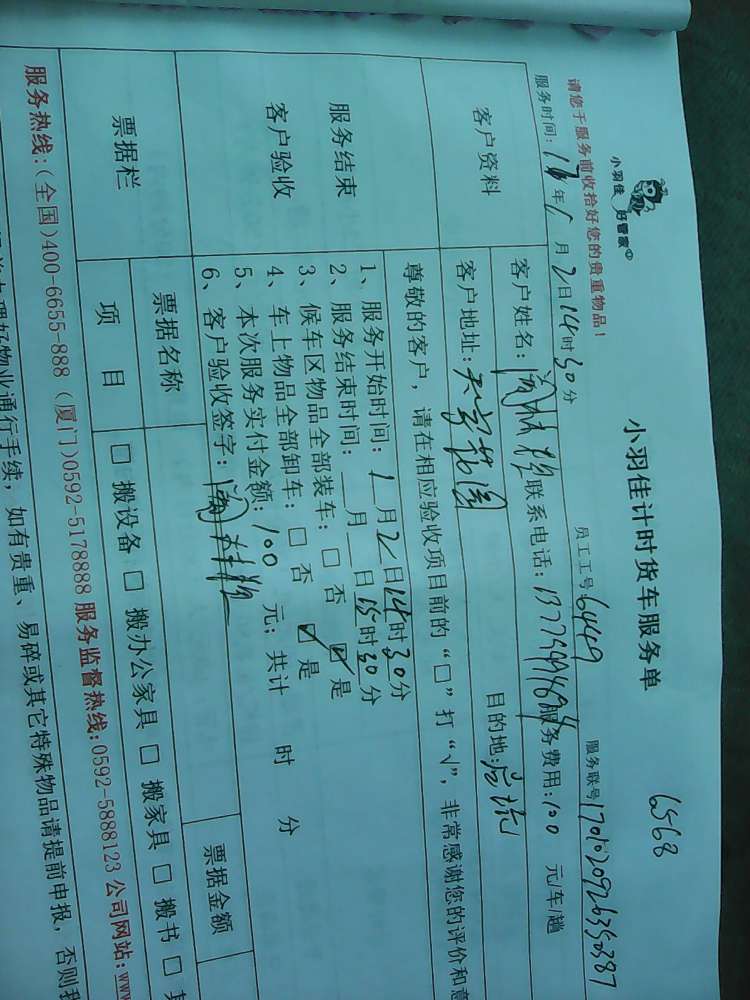 6568
小羽佳计时货车服务单
小羽佳 好管家
请您于服务前收拾好您的贵重物品！
员工工号6449
服务联号1701020926350387
服务时间：17年1月2日14时30分
客户资料
客户姓名：
联系电话：
服务费用：100 元/车/趟
客户地址：
目的地：
尊敬的客户，请在相应验收项目前的“□”打“√”，非常感谢您的评价和意
服务结束
客户验收
1、服务开始时间：1月2日14时30分
2、服务结束时间：__月__日15时30分
3、候车区物品全部装车：□ 否 ☑ 是
4、车上物品全部卸车：□ 否 ☑ 是
5、本次服务实付金额：100 元；共计 时 分
6、客户验收签字：
票据栏
票据名称
票据金额
项 目
□ 搬设备 □ 搬办公家具 □ 搬家具 □ 搬书 □
服务热线：(全国)400-6655-888 (厦门)0592-5178888 服务监督热线:0592-5888123 公司网站:www
办理好物业通行手续，如有贵重、易碎或其它特殊物品请提前申报，否则